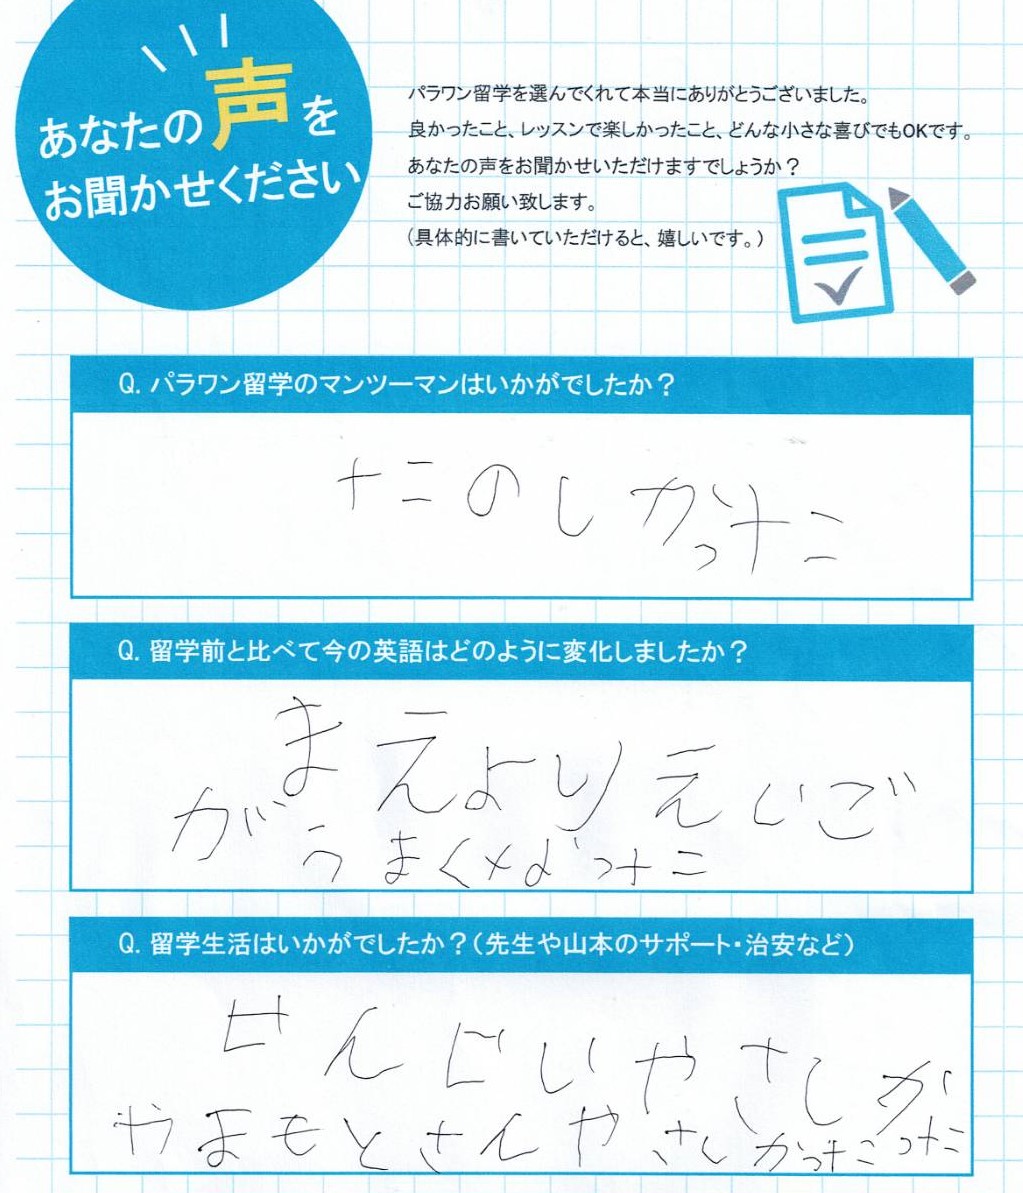 あなたの声を
お聞かせください
パラワン留学を選んでくれて本当にありがとうございました。
良かったこと、レッスンで楽しかったこと、どんな小さな喜びでもOKです。
あなたの声をお聞かせいただけますでしょうか？
ご協力お願い致します。
（具体的に書いていただけると、嬉しいです。）
Q. パラワン留学のマンツーマンはいかがでしたか？
たのしかった
Q. 留学前と比べて今の英語はどのように変化しましたか？
まえよりえいご
がうまくなった
Q. 留学生活はいかがでしたか？（先生や山本のサポート・治安など）
せんじいやさしかった
やまもとさんやさしかった